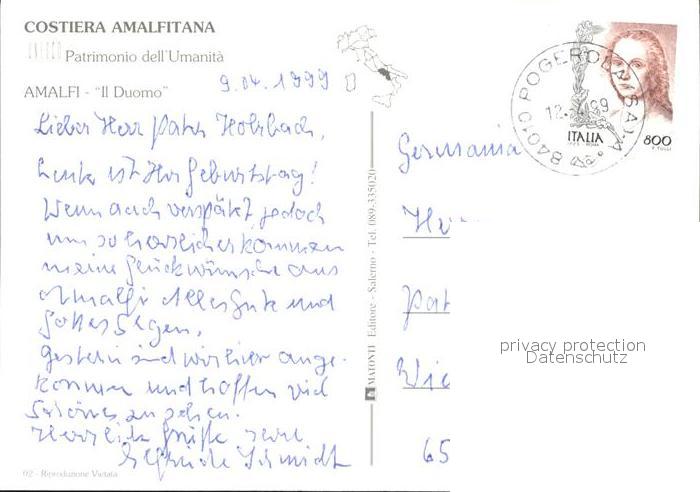 COSTIERA AMALFITANA
UNESCO Patrimonio dell'Umanità
AMALFI - "Il Duomo"
9.04.1999
Lieber Herr Pater Holzbach,
heute ist Ihr Geburtstag!
Wenn auch verspätet jedoch
um so herzlicher kommen
meine Glückwünsche aus
Amalfi Alles Gute und
Gottes Segen,
gestern sind wir hier ange-
kommen und hoffen viel
Schönes zu sehen.
Herzliche Grüße Ihre
Elfriede Schmidt
02 - Riproduzione Vietata
MATONTI Editore - Salerno - Tel. 089-335020
84010 POGEROLA (SA)
12. 99
ITALIA
800
Germania
Pat
65
privacy protection
Datenschutz